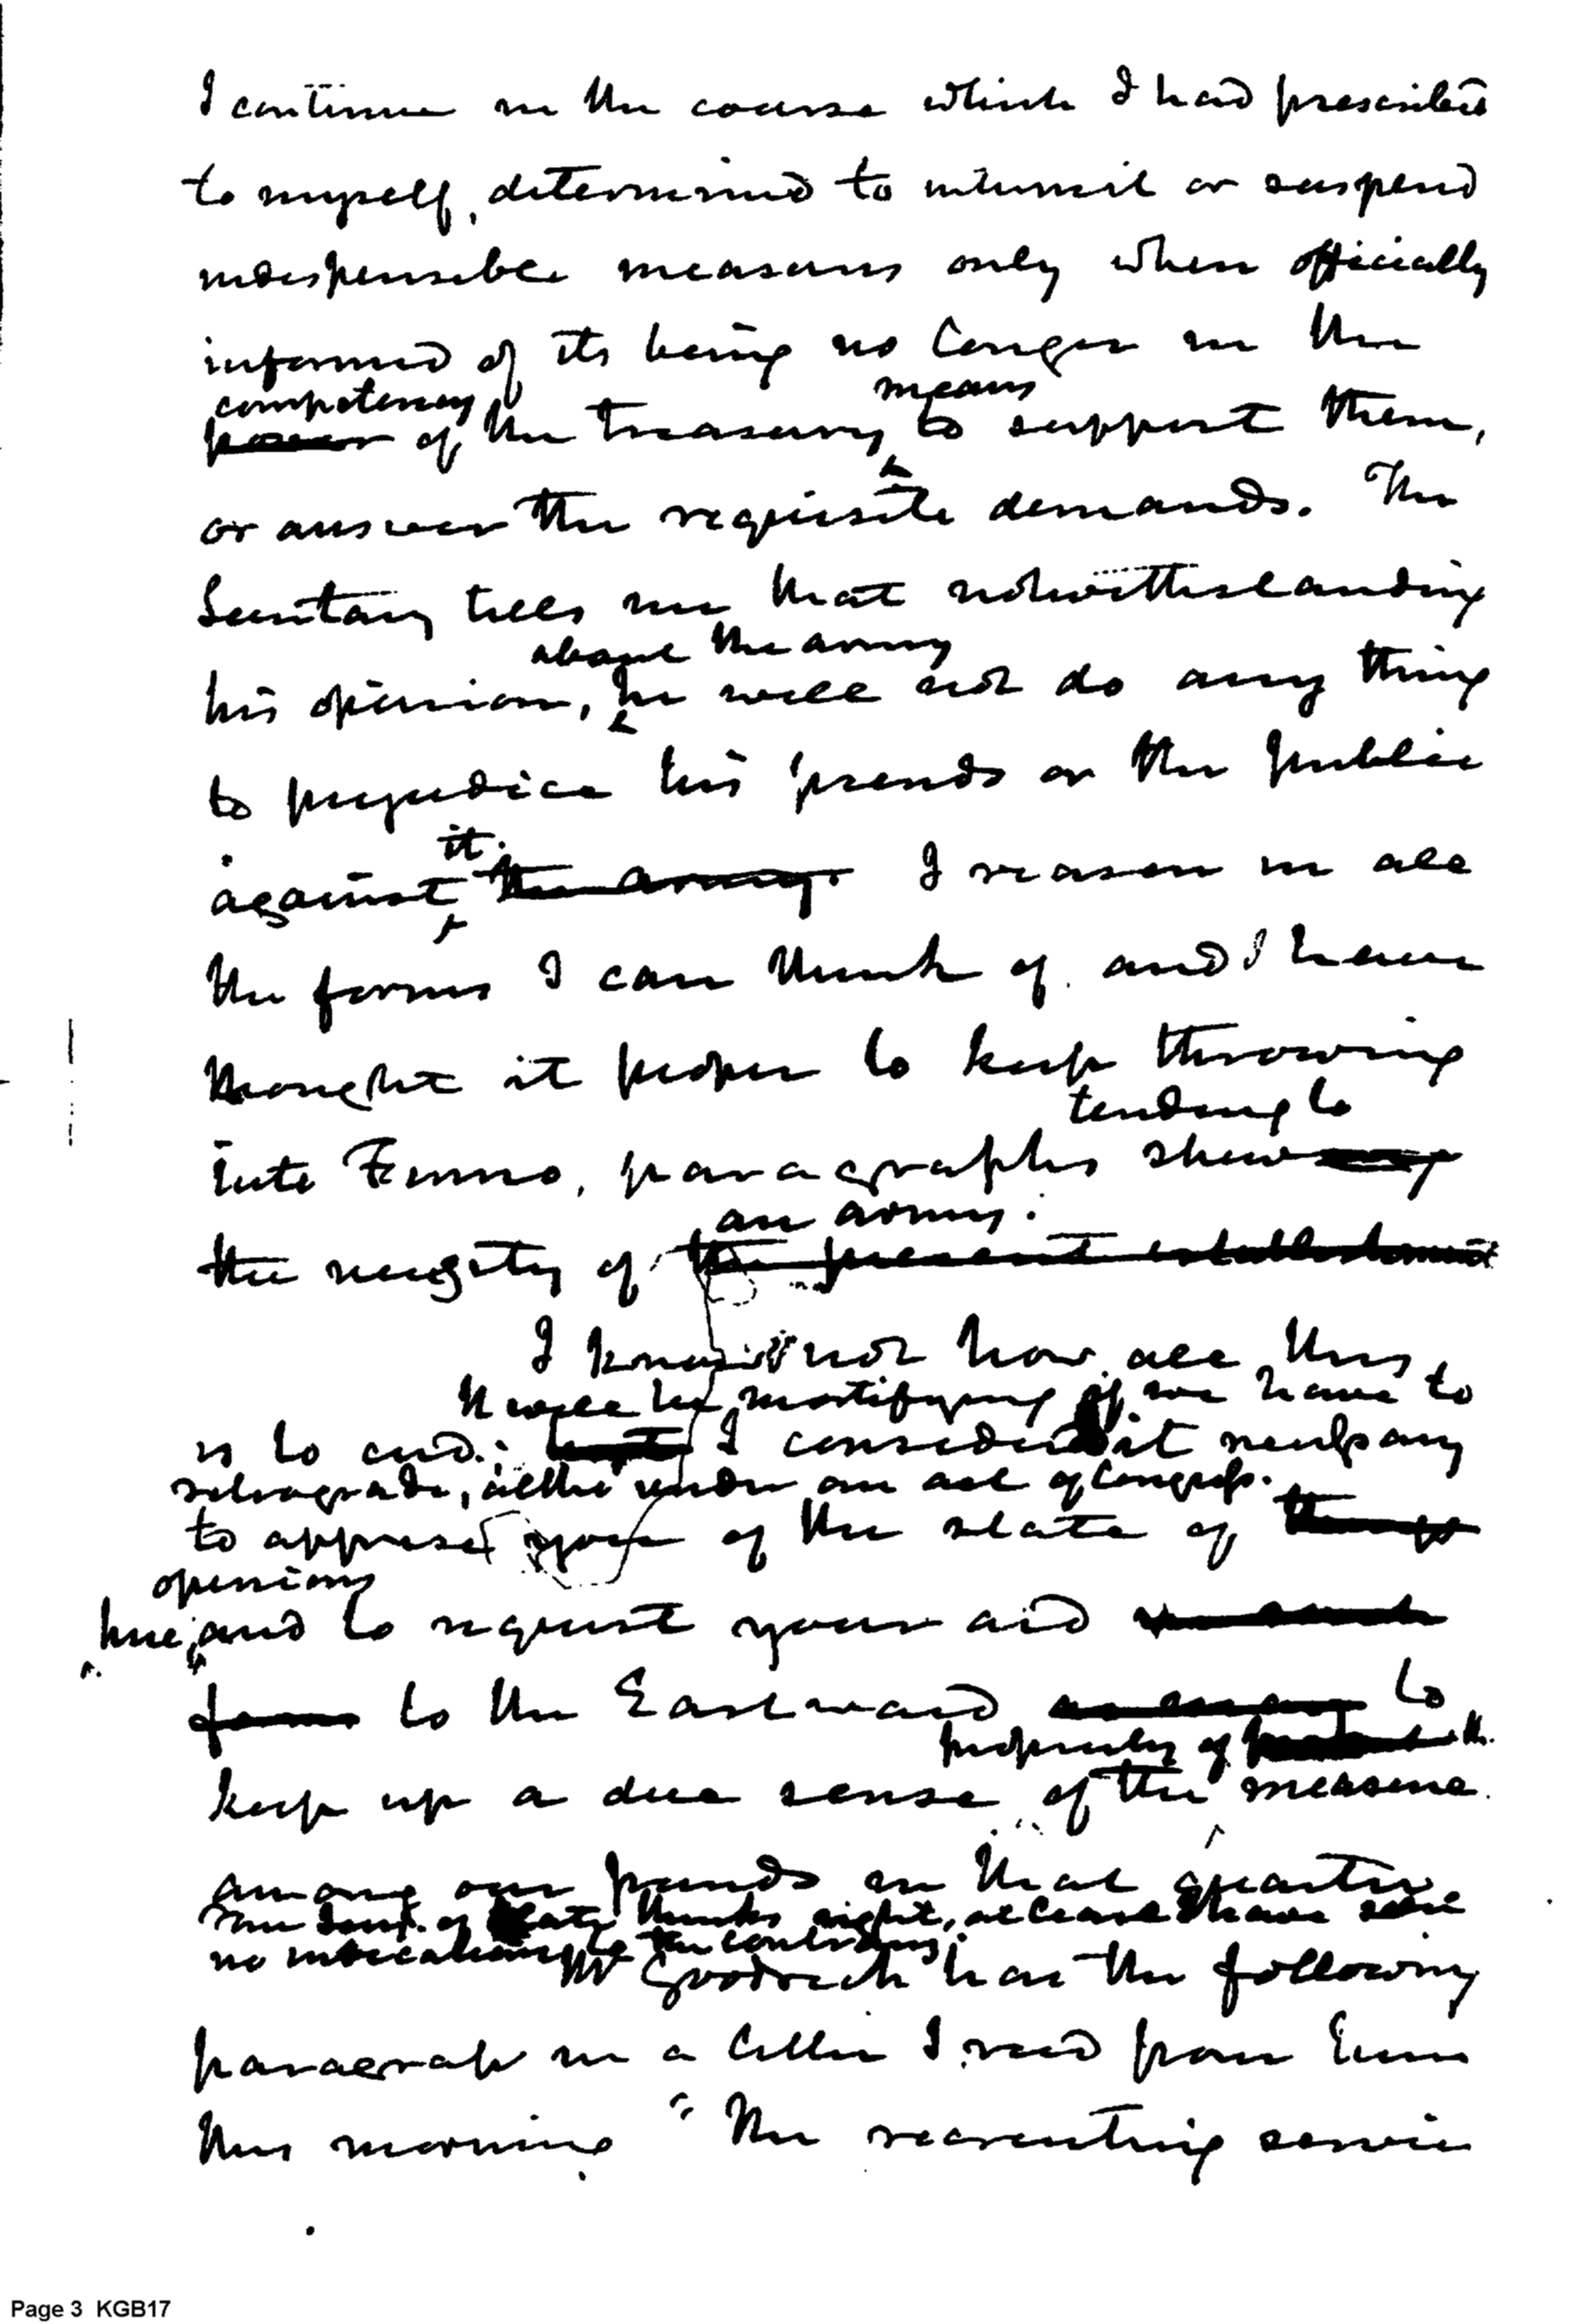 I continue in the course which I had prescribed
to myself, determined to intermit or suspend
indespensible measures only when officially
informed of its being no longer in the
competency means
power of the treasury to support them,
or answer the requisite demands. The
Secretary tells me that notwithstanding
about the army
his opinion, he will not do any thing
to prejudice his friends or the public
it.
against the army. I reason in all
the forms I can think of. and I have
thought it proper to keep throwing
tending to
into Fenno, paragraphs shewing
an army.
the necessity of the present establishment
I know not how all this
It will be mortifying if we have to
is to end; but I consider it necessary
retrograde, altho' under an act of Congress.
to apprise you of the state of things
opinions
here, and to request your aid
to the Eastward to
propriety of the
keep up a due sense of the measure
among our friends in that quarter.
The Secy. of State thinks right, at least I have seen
no indications to the contrary.
Mr Goodrich has the following
paragraph in a letter I recd from him
this morning "The recruiting service
Page 3 KGB17